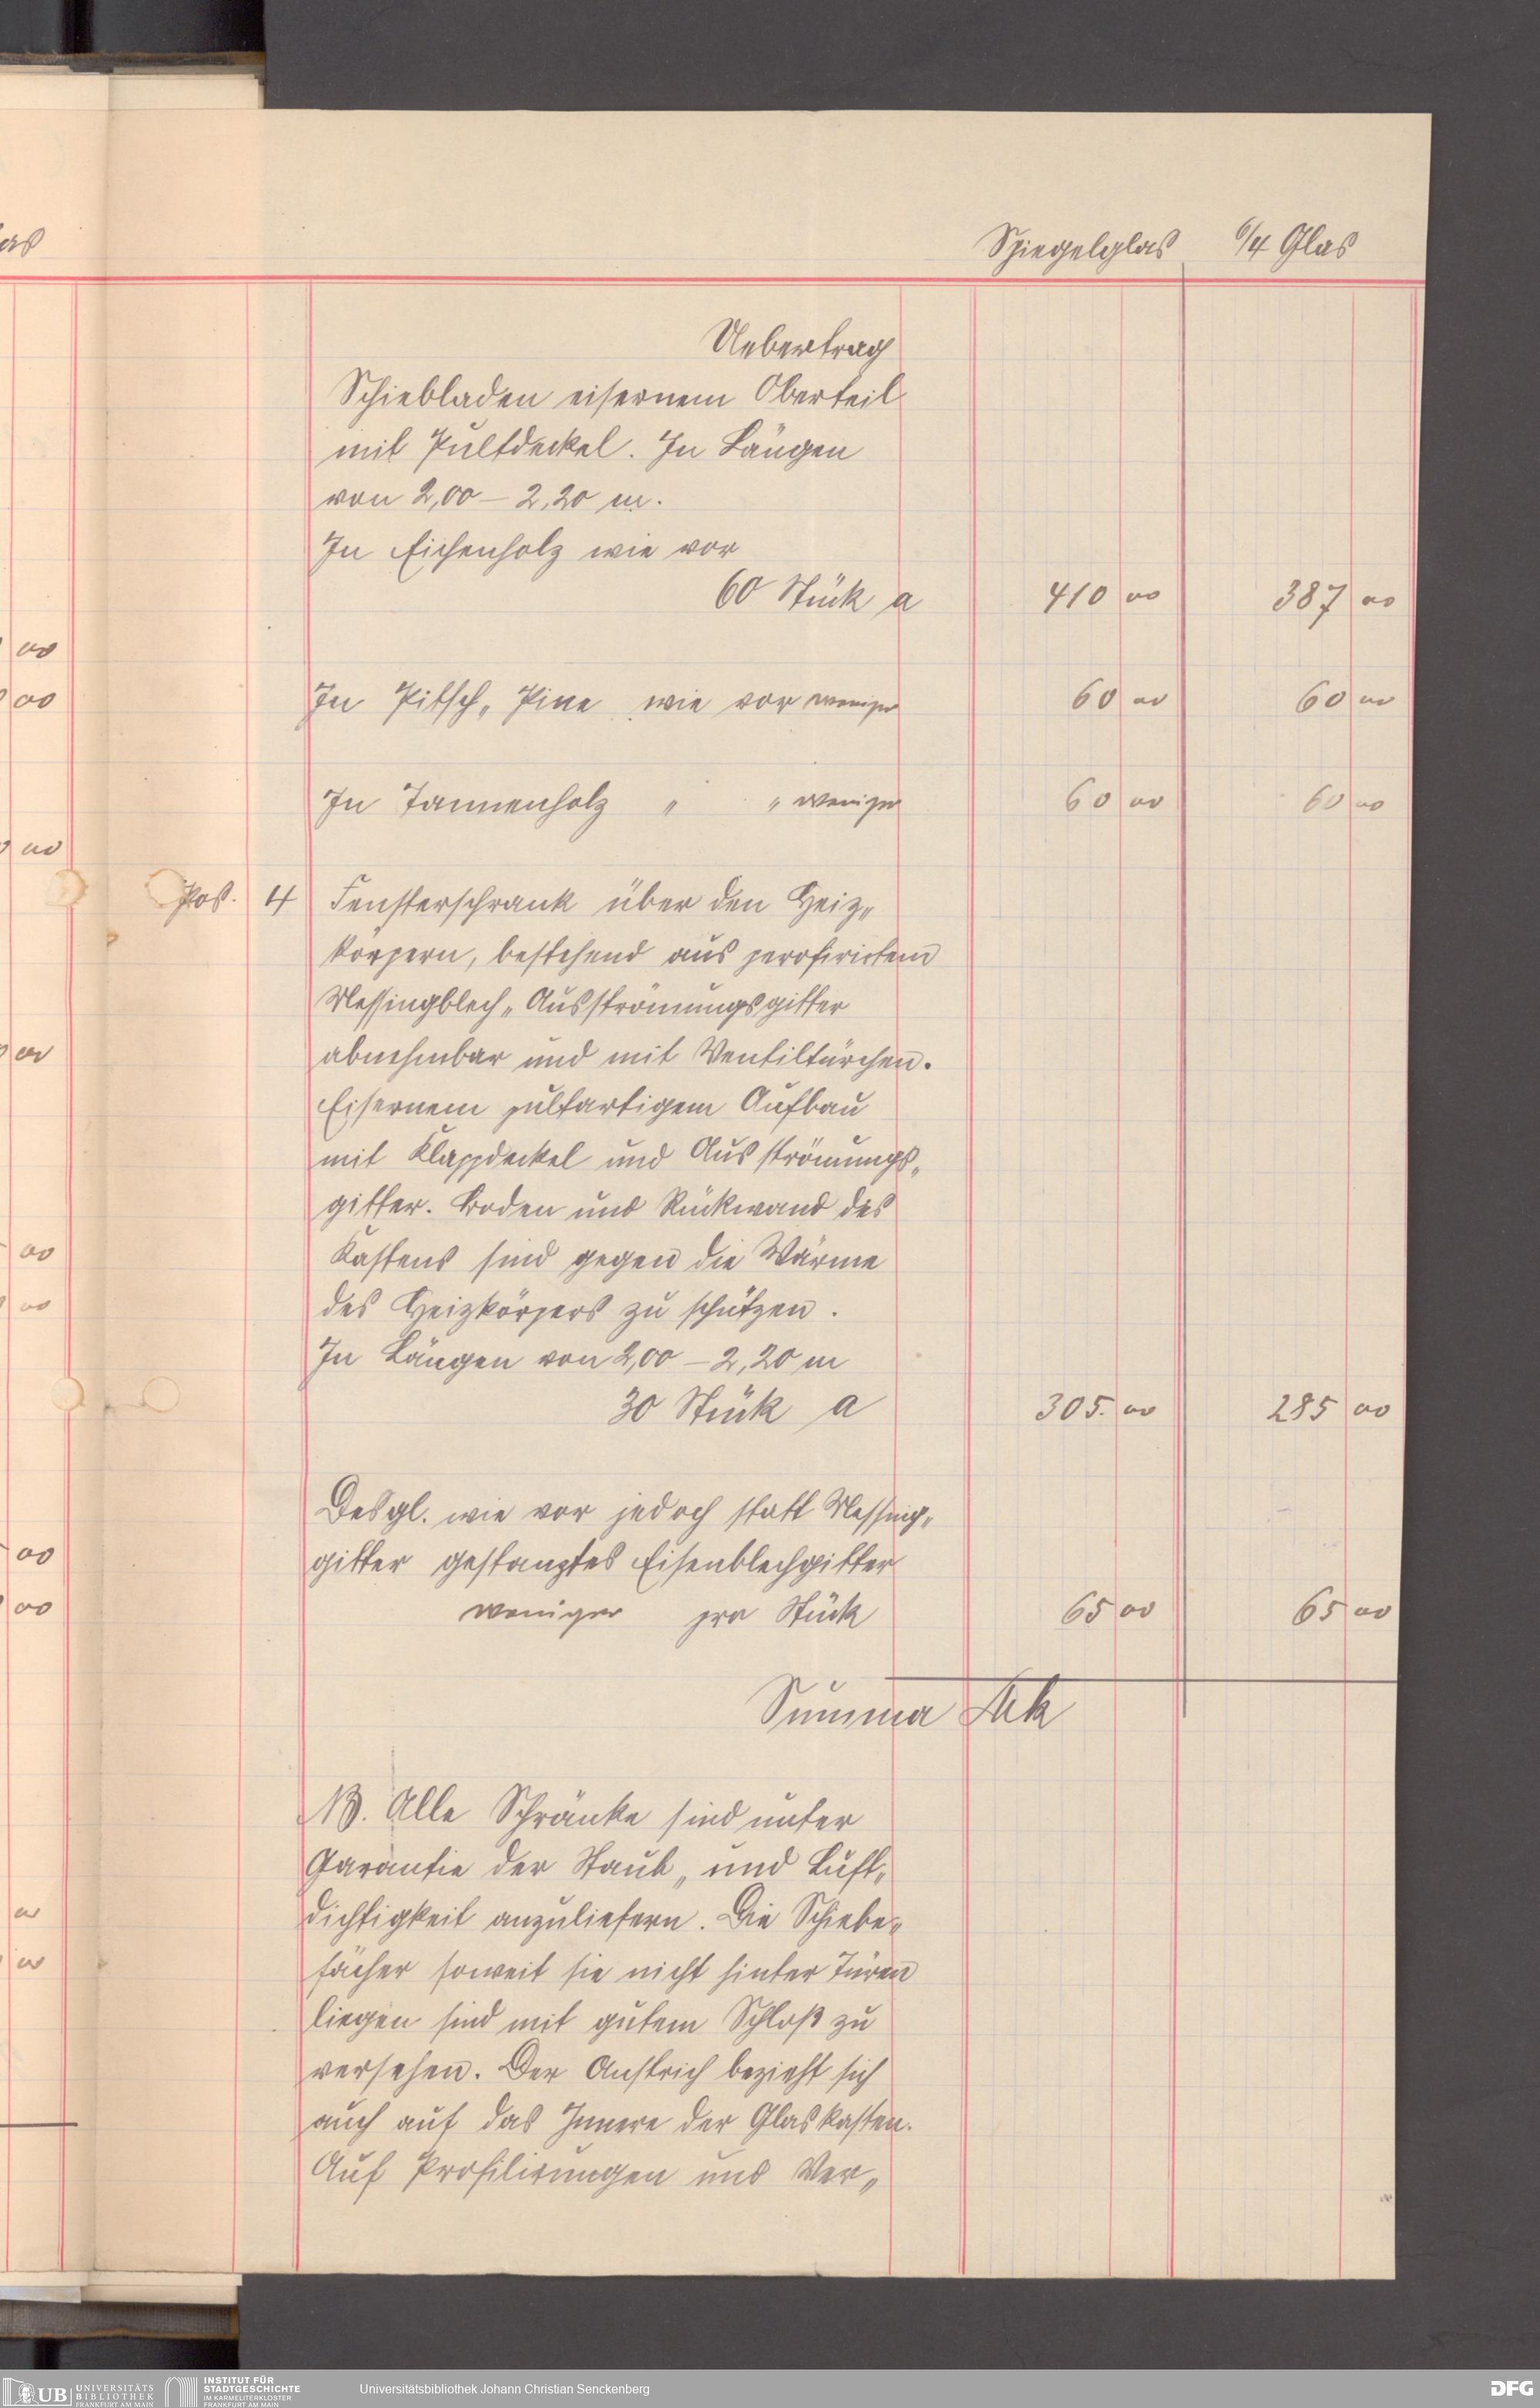 Spiegelglas 6/4 Glas
Uebertrag
Schiebladen eisernem Oberteil
mit Pultdeckel. In Längen
von 2,00 – 2,20 m.
In Eichenholz wie vor
60 Stück a 410 00 387 00
In Pitsch„ Pine wie vor weniger 60 00 60 00
In Tannenholz „ „ weniger 60 00 60 00
Pos. 4 Fensterschrank über den Heiz„
körpern, bestehend aus perofirirtem
Messingblech„ Ausströmungsgitter
abnehmbar und mit Ventiltürchen.
Eisernem pultartigem Aufbau
mit Klappdeckel und Ausströmungs„
gitter. Boden und Rückwand des
Kastens sind gegen die Wärme
des Heizkörpers zu schützen.
In Längen von 2,00 – 2,20 m
30 Stück a 305. 00 285 00
Desgl. wie vor jedoch statt Messing„
gitter gestanztes Eisenblechgitter
weniger pro Stück 65 00 65 00
Summa Mk
NB. Alle Schränke sind unter
Garantie der Staub„ und Luft„
dichtigkeit anzuliefern. Die Schiebe„
fächer soweit sie nicht hinter Türen
liegen sind mit gutem Schloß zu
versehen. Der Anstrich bezieht sich
auch auf das Innere der Glaskasten.
Auf Profilirungen und Ver„
UB UNIVERSITÄTS BIBLIOTHEK FRANKFURT AM MAIN
INSTITUT FÜR STADTGESCHICHTE IM KARMELITERKLOSTER FRANKFURT AM MAIN
Universitätsbibliothek Johann Christian Senckenberg
DFG